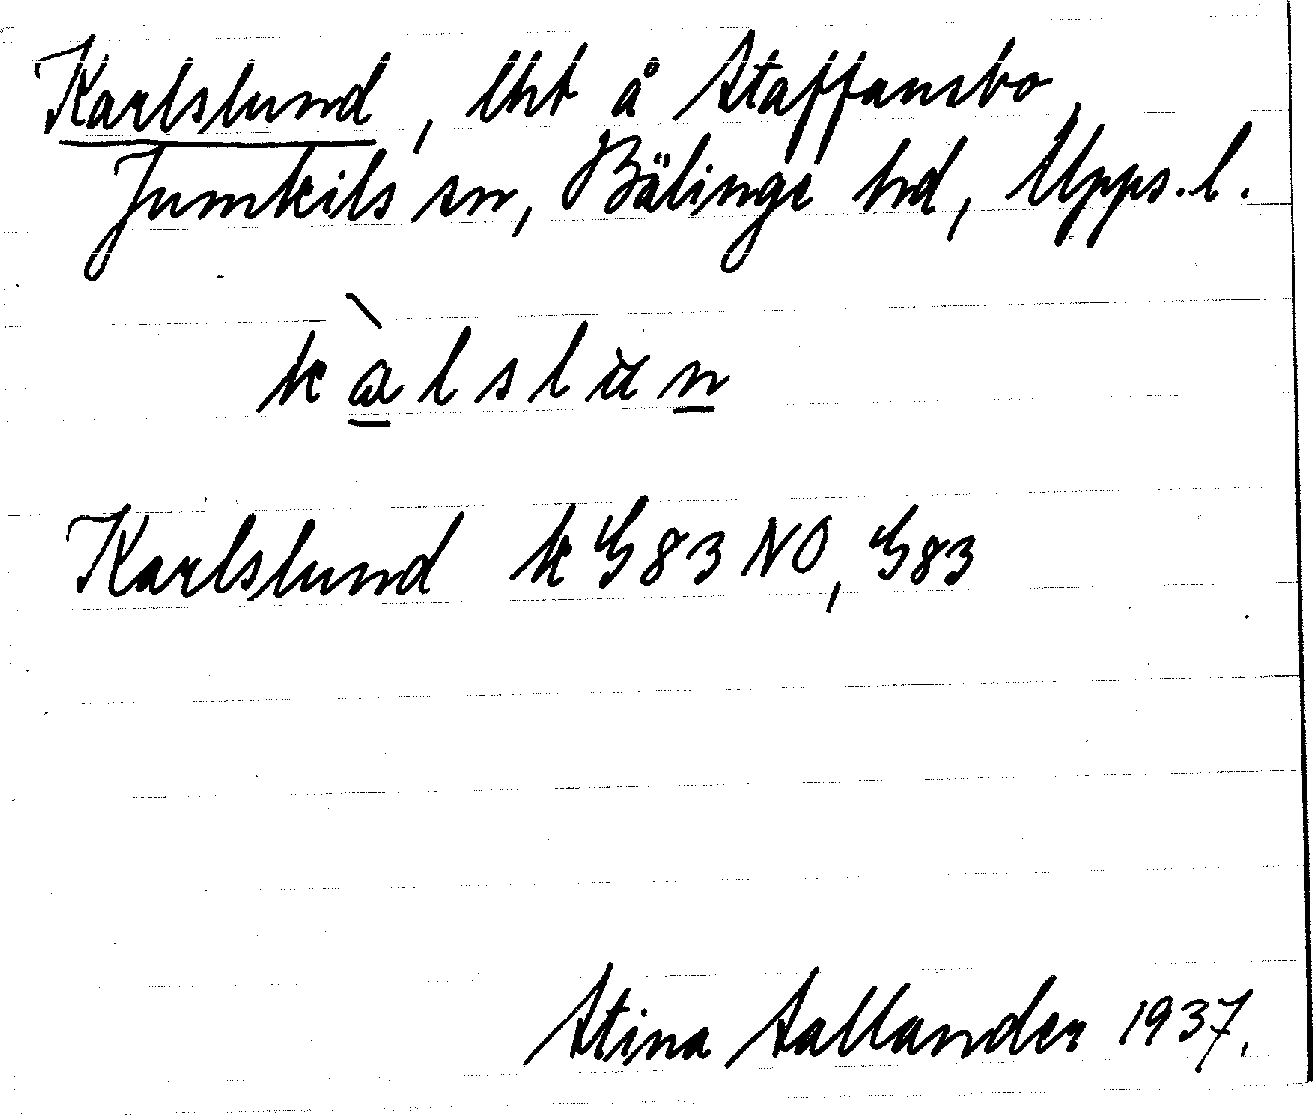 Karlslund, lht å Staffansbo,
Jumkils sn, Bälinge hd, Upps. l.
kàlslùn
Karlslund k G83 NO, G83
Stina Sallander 1937.